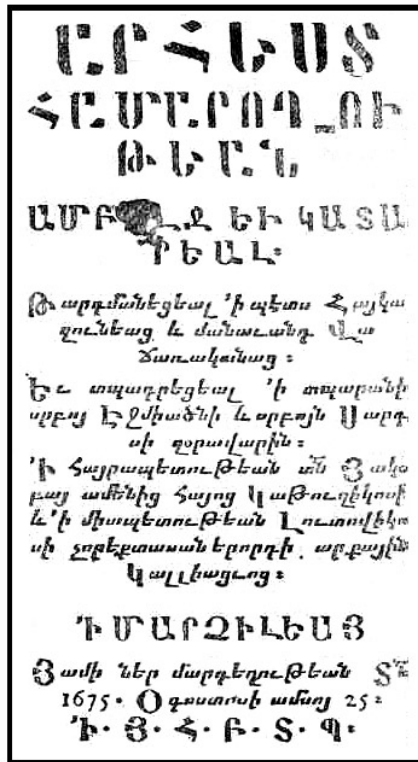 ԱՐՀԵՍՏ
ՀԱՄԱՐՈՂՈՒ
ԹԵԱՆ
ԵՒ ԿԱՏԱ
ՐԵԱԼ։
Թարգմանեցեալ ՚ի պէտս Հայկա
զունեաց և մանաւանդ Վա
ճառականաց ։
Եւ տպագրեցեալ ՚ի տպարանի
սրբոյ Էջմիածնի և սրբոյն Սարգ
սի զօրավարին ։
՚Ի Հայրապետութեան տն Յակօ
բայ ամենից Հայոց Կաթուղիկոսի
և ՚ի միապետութեան Լուտովիկօ
սի չորեքտասաներորդի արքային
Կալլիացւոց ։
՚Ի ՄԱՐԶԻԼԵԱՅ
Յամի ներ մարդեղութեան Տն
1675. Օգոստոսի ամսոյ 25 ։
՚Ի· Յ· Հ· Բ· Տ· Պ·